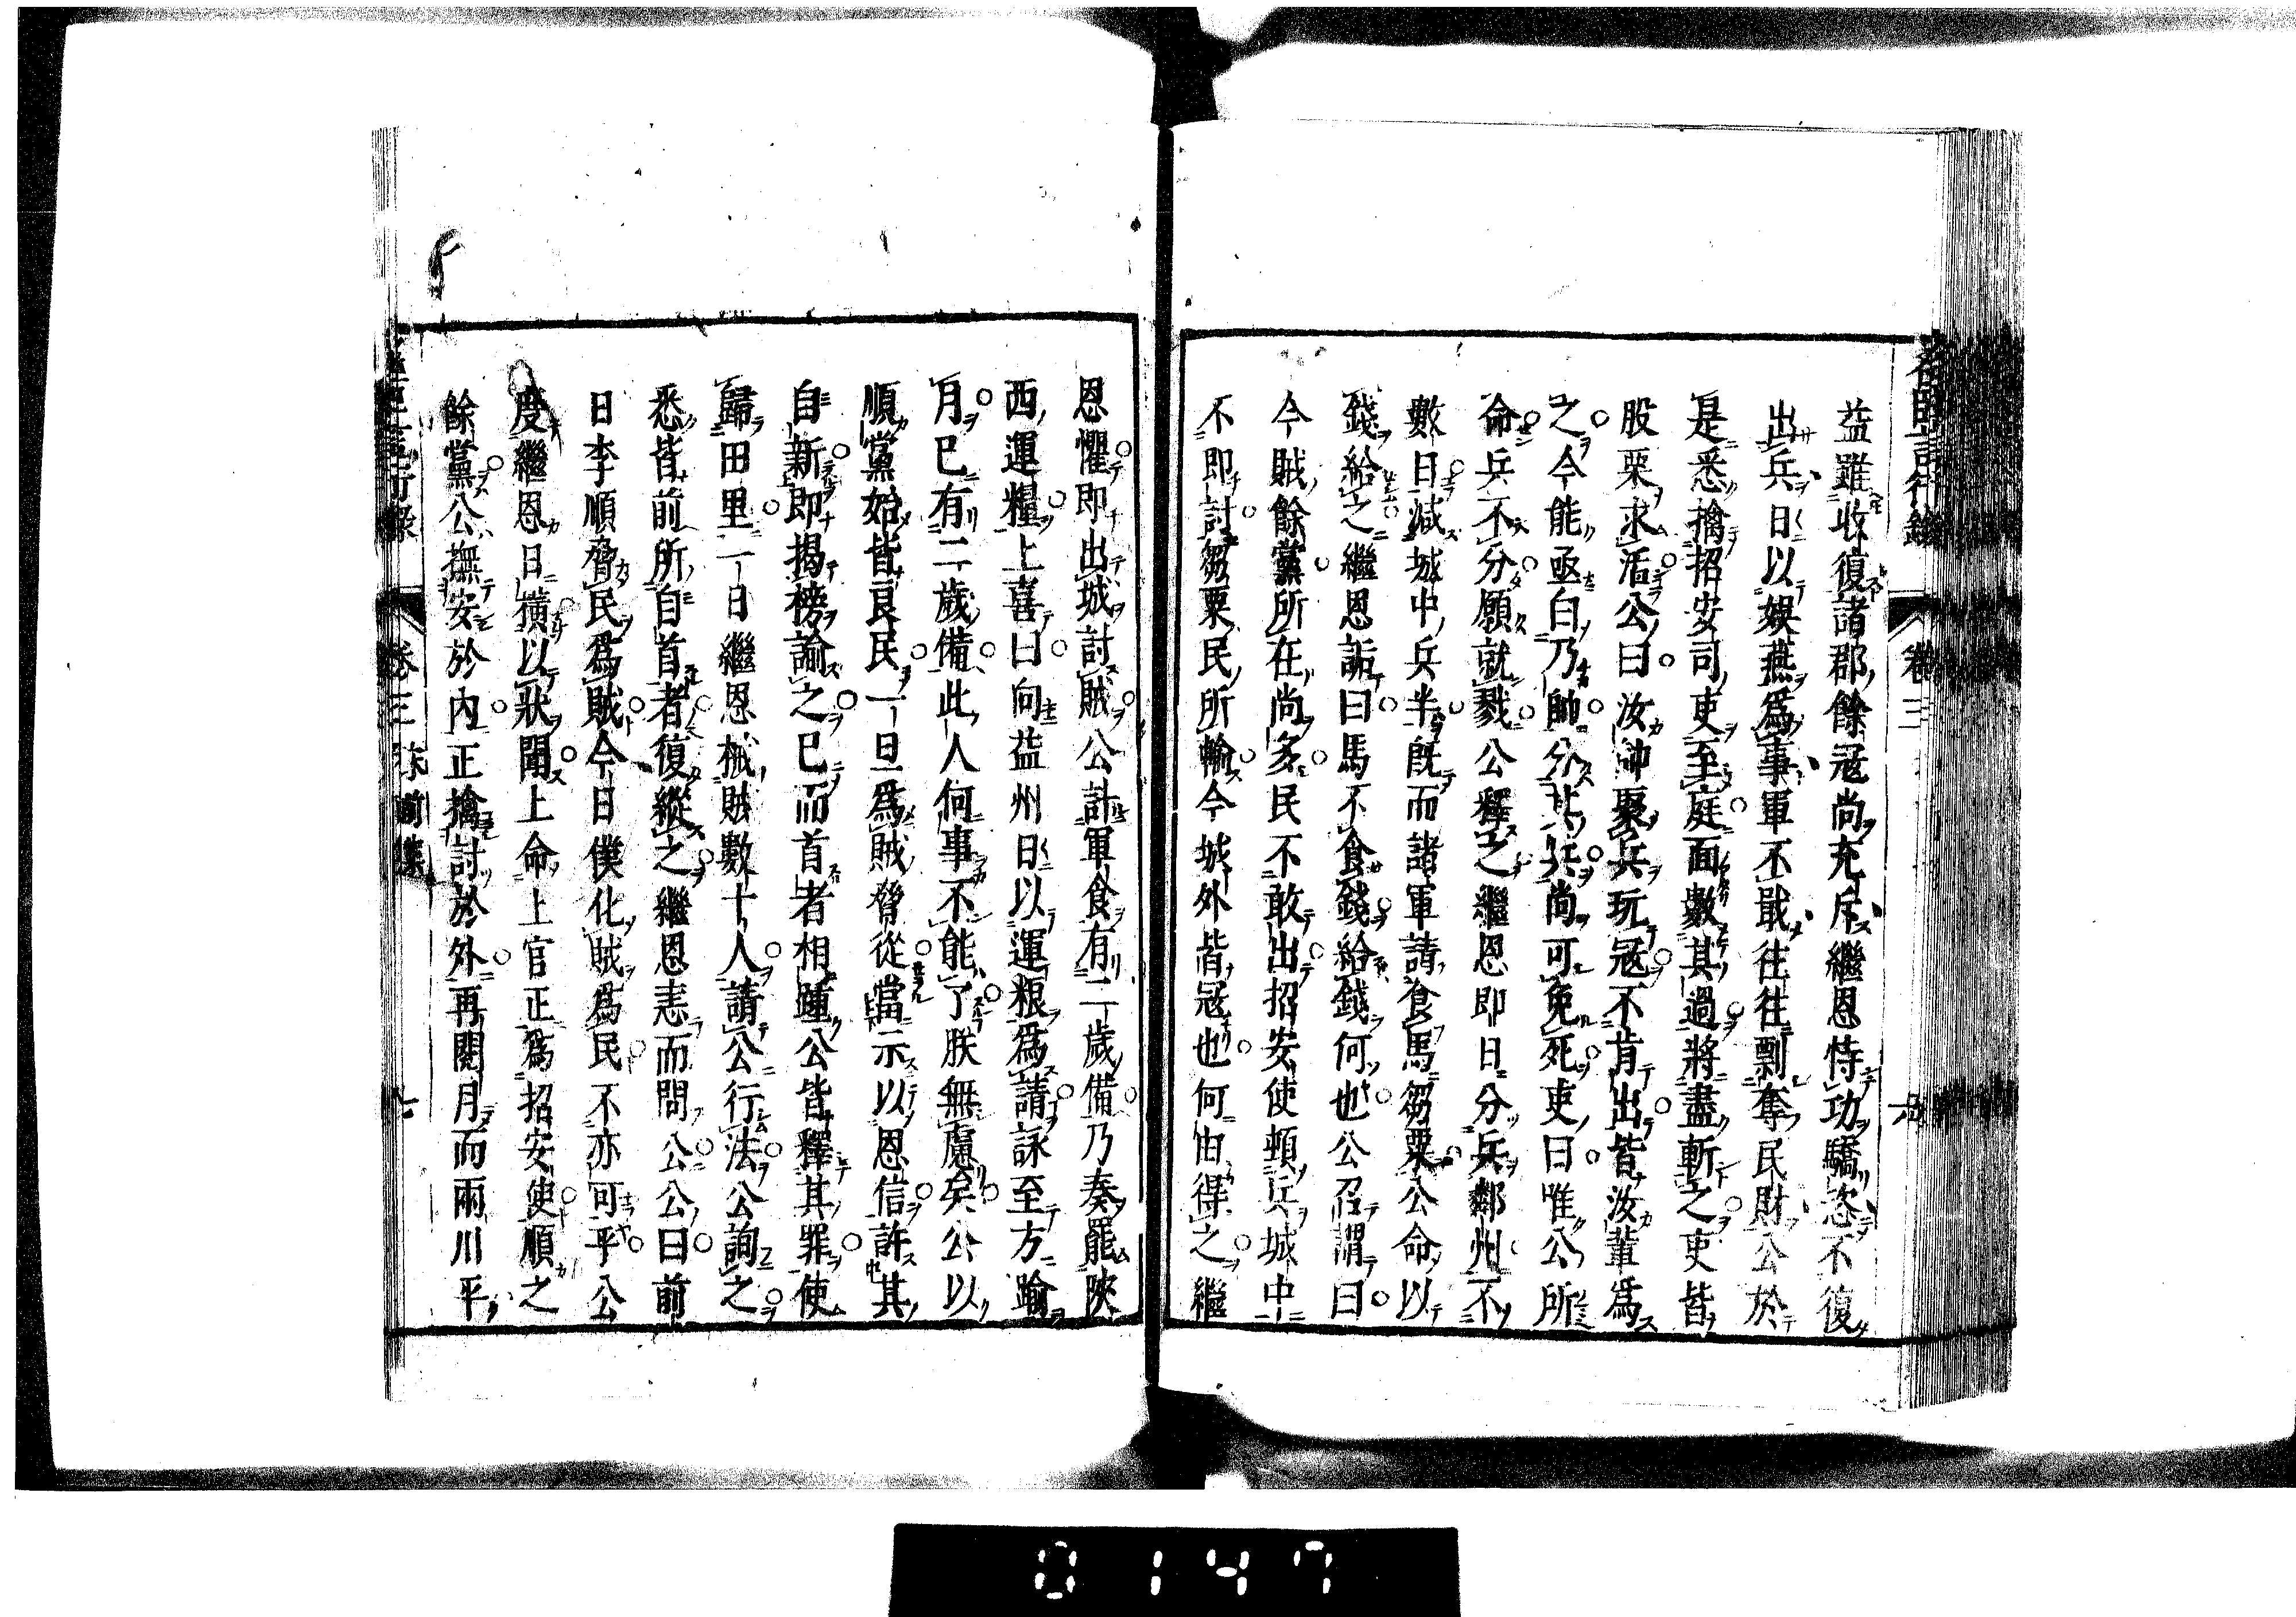 益雖收復諸郡餘冦尚充斥繼恩恃功驕恣不復
出兵日以娯燕爲事軍不戢往往剽奪民財公於
是悉擒招安司吏至庭面數其過將盡斬之吏皆
股栗求活公曰汝帥聚兵玩冦不肯出皆汝輩爲
之今能亟白乃帥分其兵尚可免死吏曰唯公所
命兵不分願就戮公釋之繼恩即日分兵鄰州不
數日減城中兵半既而諸軍請食馬芻粟公命以
錢給之繼恩詬曰馬不食錢給錢何也公召謂曰
今賊餘黨所在尚多民不敢出招安使頓兵城中
不即討芻粟民所輸今城外皆冦也何由得之繼
恩懼即出城討賊公計軍食有二歲備乃奏罷陜
西運糧上喜曰向益州日以運粮爲請詠至方踰
月已有二歲備此人何事不能了朕無慮矣公以
順黨始皆良民一旦爲賊脅從當示以恩信許其
自新即揭榜諭之已而首者相踵公皆釋其罪使
歸田里一日繼恩械賊數十人請公行法公詢之
悉皆前所自首者復縱之繼恩恚而問公公曰前
日李順脅民爲賊今日僕化賊爲民不亦可乎公
度繼恩日橫以狀聞上命上官正爲招安使順之
餘黨公撫安於内正擒討於外再閱月而兩川平
卷三
六
卷三
前集
七
0147